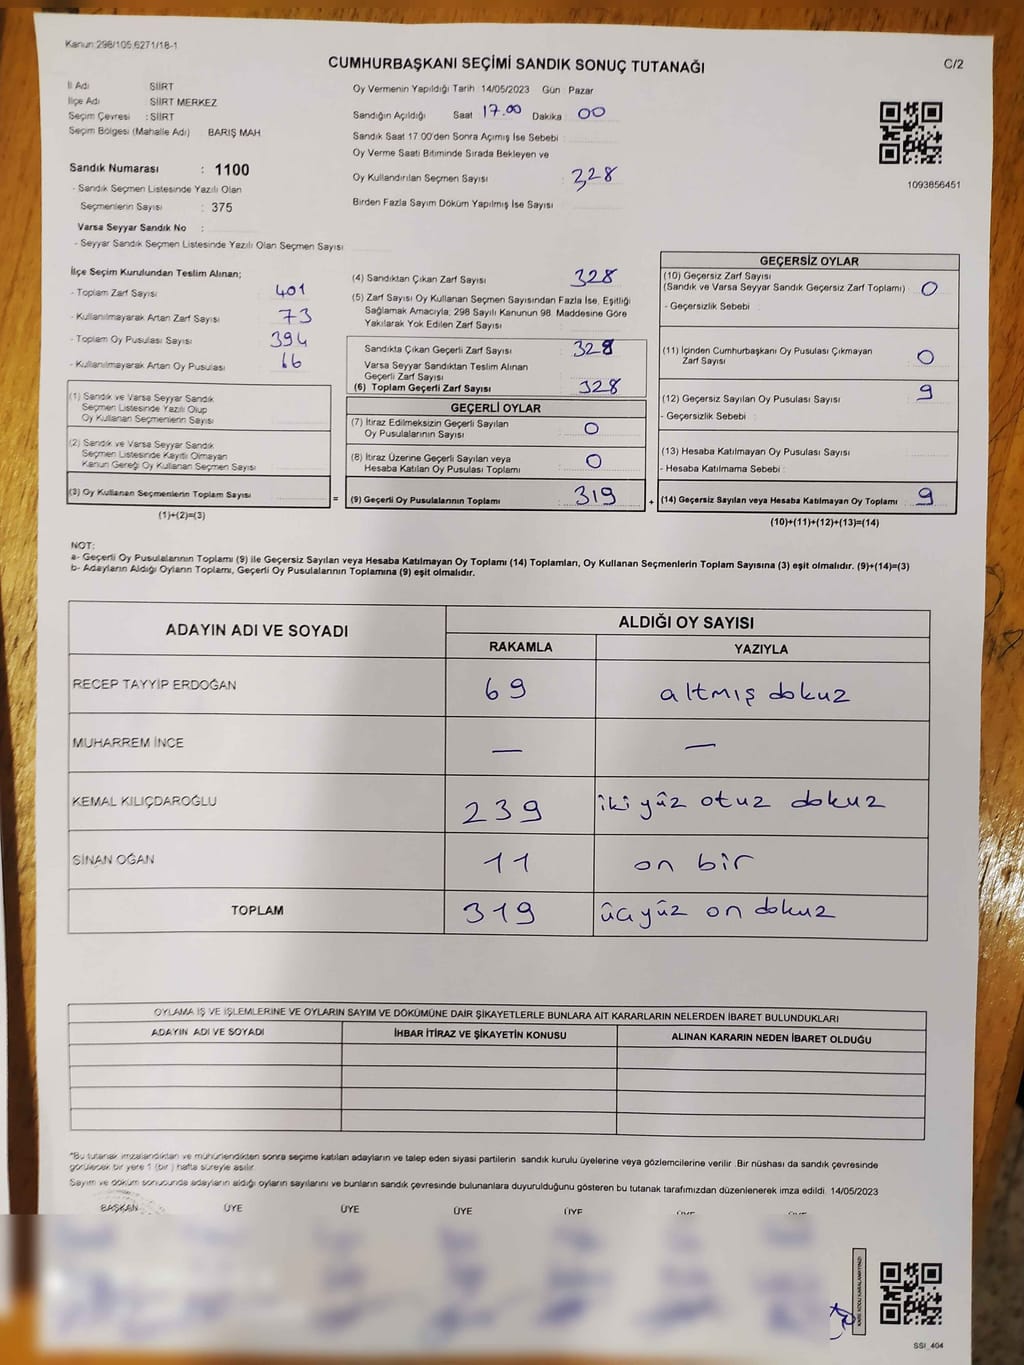 Kanun:298/105,6271/18-1
CUMHURBAŞKANI SEÇİMİ SANDIK SONUÇ TUTANAĞI
C/2
İl Adı SİİRT
İlçe Adı SİİRT MERKEZ
Seçim Çevresi : SİİRT
Seçim Bölgesi (Mahalle Adı) BARIŞ MAH
Oy Vermenin Yapıldığı Tarih 14/05/2023 Gün : Pazar
Sandığın Açıldığı Saat 17.00 Dakika 00
Sandık Saat 17.00'den Sonra Açımış İse Sebebi :
Oy Verme Saati Bitiminde Sırada Bekleyen ve
Oy Kullandırılan Seçmen Sayısı : 328
Birden Fazla Sayım Döküm Yapılmış İse Sayısı
1093856451
Sandık Numarası : 1100
- Sandık Seçmen Listesinde Yazılı Olan
Seçmenlerin Sayısı : 375
Varsa Seyyar Sandık No :
- Seyyar Sandık Seçmen Listesinde Yazılı Olan Seçmen Sayısı
İlçe Seçim Kurulundan Teslim Alınan;
- Toplam Zarf Sayısı : 401
- Kullanılmayarak Artan Zarf Sayısı : 73
- Toplam Oy Pusulası Sayısı : 394
- Kullanılmayarak Artan Oy Pusulası : 66
(1) Sandık ve Varsa Seyyar Sandık
Seçmen Listesinde Yazılı Olup
Oy Kullanan Seçmenlerin Sayısı
(2) Sandık ve Varsa Seyyar Sandık
Seçmen Listesinde Kayıtlı Olmayan
Kanun Gereği Oy Kullanan Seçmen Sayısı
(3) Oy Kullanan Seçmenlerin Toplam Sayısı
(1)+(2)=(3)
=
(4) Sandıktan Çıkan Zarf Sayısı : 328
(5) Zarf Sayısı Oy Kullanan Seçmen Sayısından Fazla İse, Eşitliği
Sağlamak Amacıyla, 298 Sayılı Kanunun 98. Maddesine Göre
Yakılarak Yok Edilen Zarf Sayısı
Sandıkta Çıkan Geçerli Zarf Sayısı 328
Varsa Seyyar Sandıktan Teslim Alınan
Geçerli Zarf Sayısı
(6) Toplam Geçerli Zarf Sayısı 328
GEÇERLİ OYLAR
(7) İtiraz Edilmeksizin Geçerli Sayılan
Oy Pusulalarının Sayısı : 0
(8) İtiraz Üzerine Geçerli Sayılan veya
Hesaba Katılan Oy Pusulası Toplamı : 0
(9) Geçerli Oy Pusulalarının Toplamı : 319
+
GEÇERSİZ OYLAR
(10) Geçersiz Zarf Sayısı
(Sandık ve Varsa Seyyar Sandık Geçersiz Zarf Toplamı) : 0
- Geçersizlik Sebebi :
(11) İçinden Cumhurbaşkanı Oy Pusulası Çıkmayan
Zarf Sayısı : 0
(12) Geçersiz Sayılan Oy Pusulası Sayısı : 9
- Geçersizlik Sebebi :
(13) Hesaba Katılmayan Oy Pusulası Sayısı :
- Hesaba Katılmama Sebebi :
(14) Geçersiz Sayılan veya Hesaba Katılmayan Oy Toplamı : 9
(10)+(11)+(12)+(13)=(14)
NOT:
a- Geçerli Oy Pusulalarının Toplamı (9) ile Geçersiz Sayılan veya Hesaba Katılmayan Oy Toplamı (14) Toplamları, Oy Kullanan Seçmenlerin Toplam Sayısına (3) eşit olmalıdır. (9)+(14)=(3)
b- Adayların Aldığı Oyların Toplamı, Geçerli Oy Pusulalarının Toplamına (9) eşit olmalıdır.
ADAYIN ADI VE SOYADI
ALDIĞI OY SAYISI
RAKAMLA YAZIYLA
RECEP TAYYİP ERDOĞAN 69 altmış dokuz
MUHARREM İNCE — —
KEMAL KILIÇDAROĞLU 239 iki yüz otuz dokuz
SİNAN OĞAN 11 on bir
TOPLAM 319 üçyüz on dokuz
OYLAMA İŞ VE İŞLEMLERİNE VE OYLARIN SAYIM VE DÖKÜMÜNE DAİR ŞİKAYETLERLE BUNLARA AİT KARARLARIN NELERDEN İBARET BULUNDUKLARI
ADAYIN ADI VE SOYADI İHBAR İTİRAZ VE ŞİKAYETİN KONUSU ALINAN KARARIN NEDEN İBARET OLDUĞU
*Bu tutanak imzalandıktan ve mühürlendikten sonra seçime katılan adayların ve talep eden siyasi partilerin sandık kurulu üyelerine veya gözlemcilerine verilir .Bir nüshası da sandık çevresinde
görülecek bir yere 1 (bir ) hafta süreyle asılır.
Sayım ve döküm sonucunda adayların aldığı oyların sayılarını ve bunların sandık çevresinde bulunanlara duyurulduğunu gösteren bu tutanak tarafımızdan düzenlenerek imza edildi. 14/05/2023
BAŞKAN ÜYE ÜYE ÜYE ÜYE ÜYE ÜYE
SSI_404